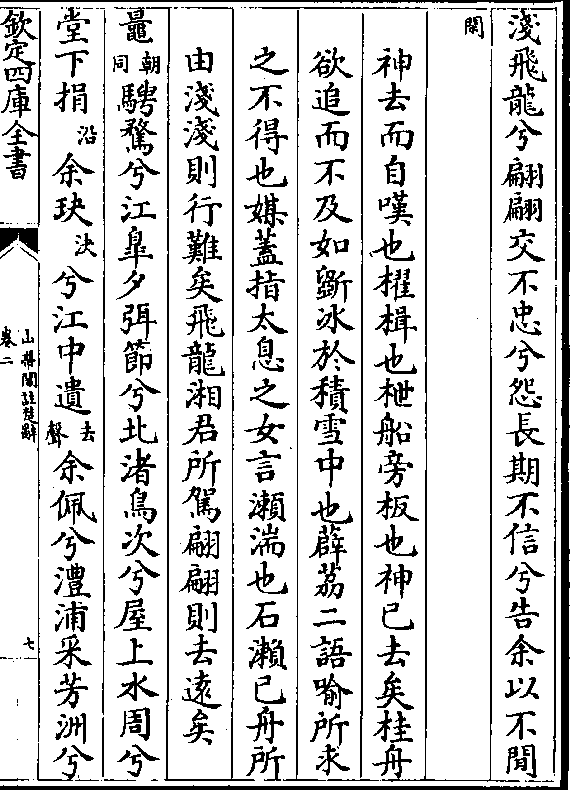 淺飛龍兮翩翩交不忠兮怨長期不信兮告余以不閒
閑
神去而自嘆也櫂楫也枻船旁板也神已去矣桂舟
欲追而不及如斵冰於積雪中也薜荔二語喻所求
之不得也媒蓋指太息之女言瀨湍也石瀨已舟所
由淺淺則行難矣飛龍湘君所駕翩翩則去遠矣
鼂朝同騁騖兮江臯夕弭節兮北渚鳥次兮屋上水周兮
堂下捐沿余玦決兮江中遺去聲余佩兮澧浦采芳洲兮
欽定四庫全書
山帶閣註楚辭
卷二
七